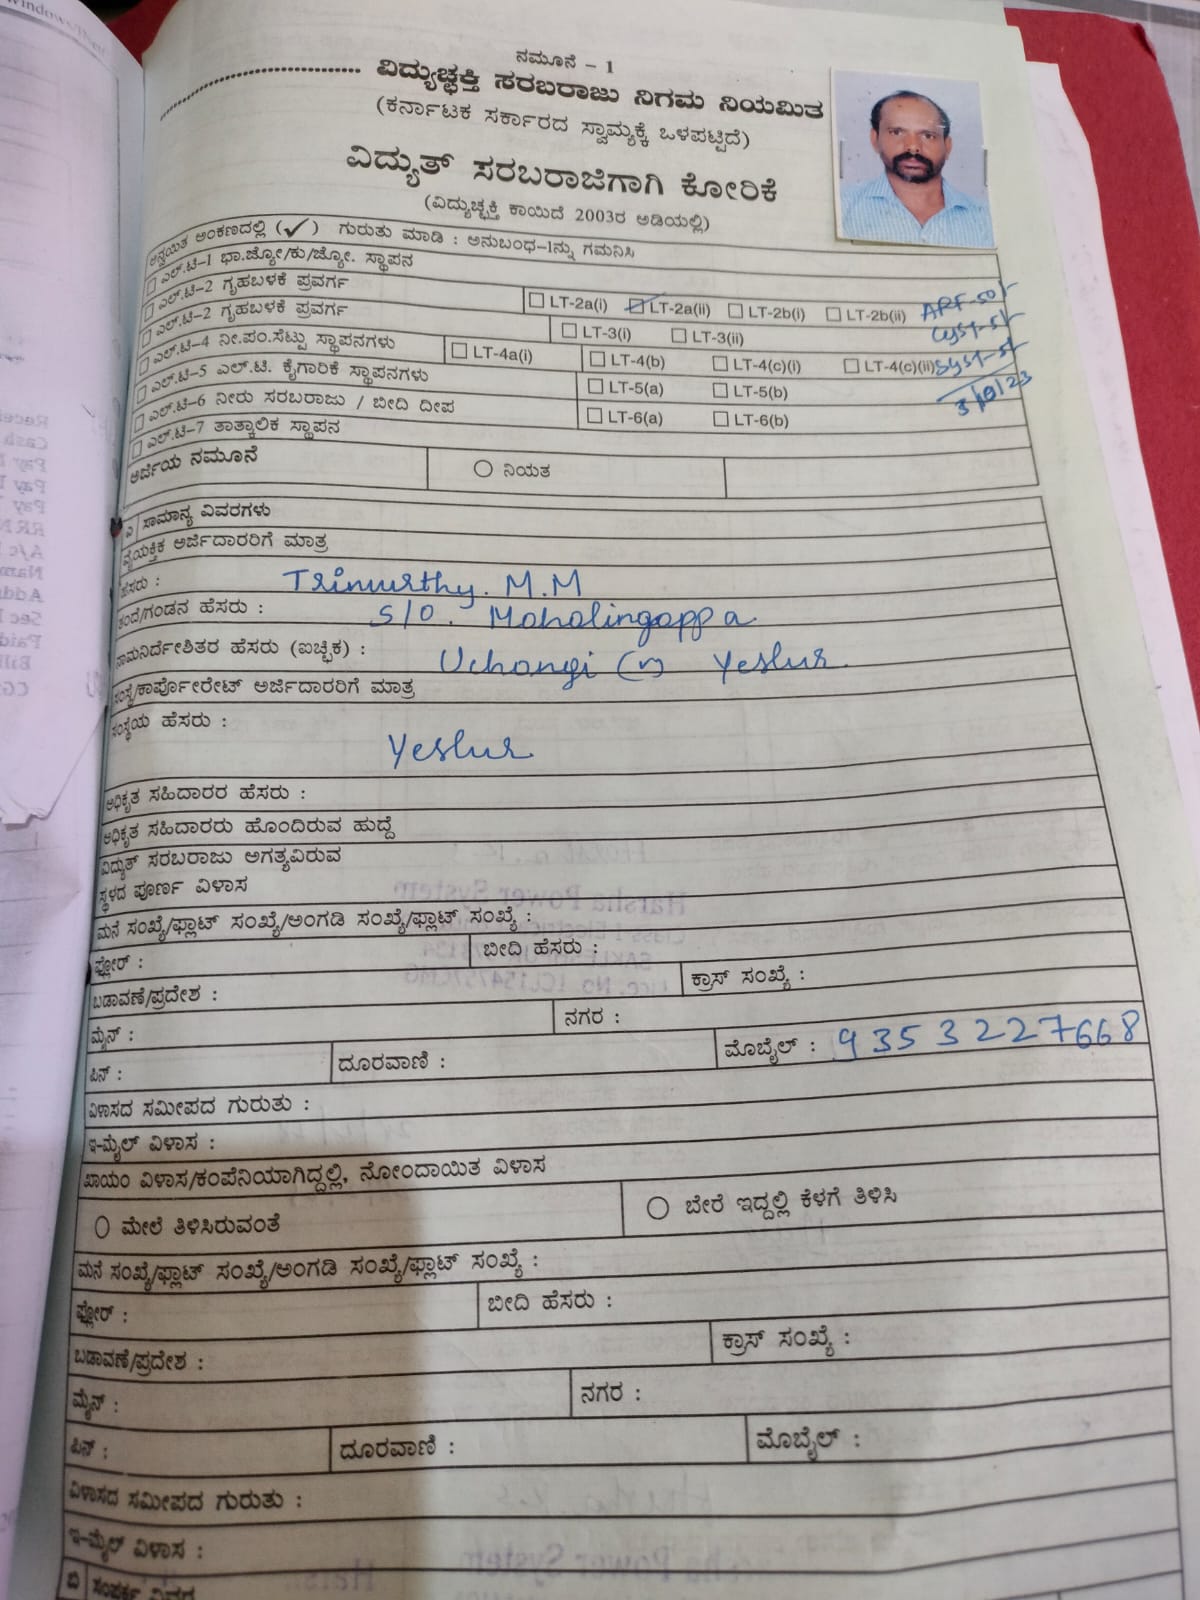 ನಮೂನೆ – 1
ವಿದ್ಯುಚ್ಛಕ್ತಿ ಸರಬರಾಜು ನಿಗಮ ನಿಯಮಿತ
(ಕರ್ನಾಟಕ ಸರ್ಕಾರದ ಸ್ವಾಮ್ಯಕ್ಕೆ ಒಳಪಟ್ಟಿದೆ)
ವಿದ್ಯುತ್ ಸರಬರಾಜಿಗಾಗಿ ಕೋರಿಕೆ
(ವಿದ್ಯುಚ್ಛಕ್ತಿ ಕಾಯಿದೆ 2003ರ ಅಡಿಯಲ್ಲಿ)
ಅನ್ವಯಿತ ಅಂಕಣದಲ್ಲಿ (✓) ಗುರುತು ಮಾಡಿ : ಅನುಬಂಧ–1ನ್ನು ಗಮನಿಸಿ
ಎಲ್.ಟಿ–1 ಭಾ.ಜ್ಯೋ/ಕು/ಜ್ಯೋ. ಸ್ಥಾಪನ
ಎಲ್.ಟಿ–2 ಗೃಹಬಳಕೆ ಪ್ರವರ್ಗ LT-2a(i) LT-2a(ii) LT-2b(i) LT-2b(ii)
ಎಲ್.ಟಿ–2 ಗೃಹಬಳಕೆ ಪ್ರವರ್ಗ LT-3(i) LT-3(ii)
ಎಲ್.ಟಿ–4 ನೀ.ಪಂ.ಸೆಟ್ಟು ಸ್ಥಾಪನಗಳು LT-4a(i) LT-4(b) LT-4(c)(i) LT-4(c)(ii)
ಎಲ್.ಟಿ–5 ಎಲ್.ಟಿ. ಕೈಗಾರಿಕೆ ಸ್ಥಾಪನಗಳು LT-5(a) LT-5(b)
3/8/23
ಎಲ್.ಟಿ–6 ನೀರು ಸರಬರಾಜು / ಬೀದಿ ದೀಪ LT-6(a) LT-6(b)
ಎಲ್.ಟಿ–7 ತಾತ್ಕಾಲಿಕ ಸ್ಥಾಪನ
ಅರ್ಜಿಯ ನಮೂನೆ ನಿಯತ
ಎ ಸಾಮಾನ್ಯ ವಿವರಗಳು
ವೈಯಕ್ತಿಕ ಅರ್ಜಿದಾರರಿಗೆ ಮಾತ್ರ
ಹೆಸರು : Trimurthy. M.M
ತಂದೆ/ಗಂಡನ ಹೆಸರು : S/O. Mahalingappa
ನಾಮನಿರ್ದೇಶಿತರ ಹೆಸರು (ಐಚ್ಛಿಕ) : Uchangi (v) Yeslur.
ಸಂಸ್ಥೆ/ಕಾರ್ಪೋರೇಟ್ ಅರ್ಜಿದಾರರಿಗೆ ಮಾತ್ರ
ಸಂಸ್ಥೆಯ ಹೆಸರು :
Yeslur
ಅಧಿಕೃತ ಸಹಿದಾರರ ಹೆಸರು :
ಅಧಿಕೃತ ಸಹಿದಾರರು ಹೊಂದಿರುವ ಹುದ್ದೆ
ವಿದ್ಯುತ್ ಸರಬರಾಜು ಅಗತ್ಯವಿರುವ
ಸ್ಥಳದ ಪೂರ್ಣ ವಿಳಾಸ
ಮನೆ ಸಂಖ್ಯೆ/ಫ್ಲಾಟ್ ಸಂಖ್ಯೆ/ಅಂಗಡಿ ಸಂಖ್ಯೆ/ಫ್ಲಾಟ್ ಸಂಖ್ಯೆ :
ಫ್ಲೋರ್ : ಬೀದಿ ಹೆಸರು :
ಬಡಾವಣೆ/ಪ್ರದೇಶ : ಕ್ರಾಸ್ ಸಂಖ್ಯೆ :
ಮೈನ್ : ನಗರ :
ಪಿನ್ : ದೂರವಾಣಿ : ಮೊಬೈಲ್ : 9353227668
ವಿಳಾಸದ ಸಮೀಪದ ಗುರುತು :
ಇ-ಮೈಲ್ ವಿಳಾಸ :
ಖಾಯಂ ವಿಳಾಸ/ಕಂಪೆನಿಯಾಗಿದ್ದಲ್ಲಿ, ನೋಂದಾಯಿತ ವಿಳಾಸ
ಮೇಲೆ ತಿಳಿಸಿರುವಂತೆ ಬೇರೆ ಇದ್ದಲ್ಲಿ ಕೆಳಗೆ ತಿಳಿಸಿ
ಮನೆ ಸಂಖ್ಯೆ/ಫ್ಲಾಟ್ ಸಂಖ್ಯೆ/ಅಂಗಡಿ ಸಂಖ್ಯೆ/ಫ್ಲಾಟ್ ಸಂಖ್ಯೆ :
ಫ್ಲೋರ್ : ಬೀದಿ ಹೆಸರು :
ಬಡಾವಣೆ/ಪ್ರದೇಶ : ಕ್ರಾಸ್ ಸಂಖ್ಯೆ :
ಮೈನ್ : ನಗರ :
ಪಿನ್ : ದೂರವಾಣಿ : ಮೊಬೈಲ್ :
ವಿಳಾಸದ ಸಮೀಪದ ಗುರುತು :
ಇ-ಮೈಲ್ ವಿಳಾಸ :
ಬಿ ಸಂಪರ್ಕ ವಿವರ